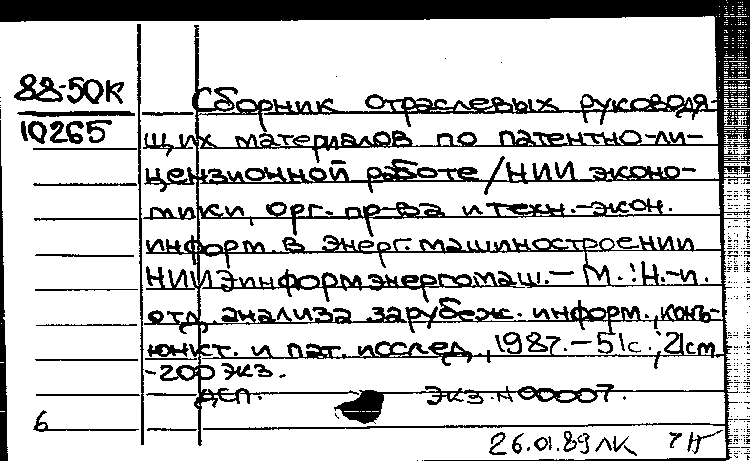 88-50К
10265
Сборник отраслевых руководя-
щих материалов по патентно-ли-
цензионной работе / НИИ эконо-
мики, орг. пр-ва и техн.-экон.
информ. в энерг. машиностроении
НИИЭинформэнергомаш. – М. : Н.-и.
отд. анализа зарубеж. информ., конъ-
юнкт. и пат. исслед., 1987. – 51с.; 21см.
-200 экз.
ДСП. Экз. №00007.
6
26.01.89 ЛК